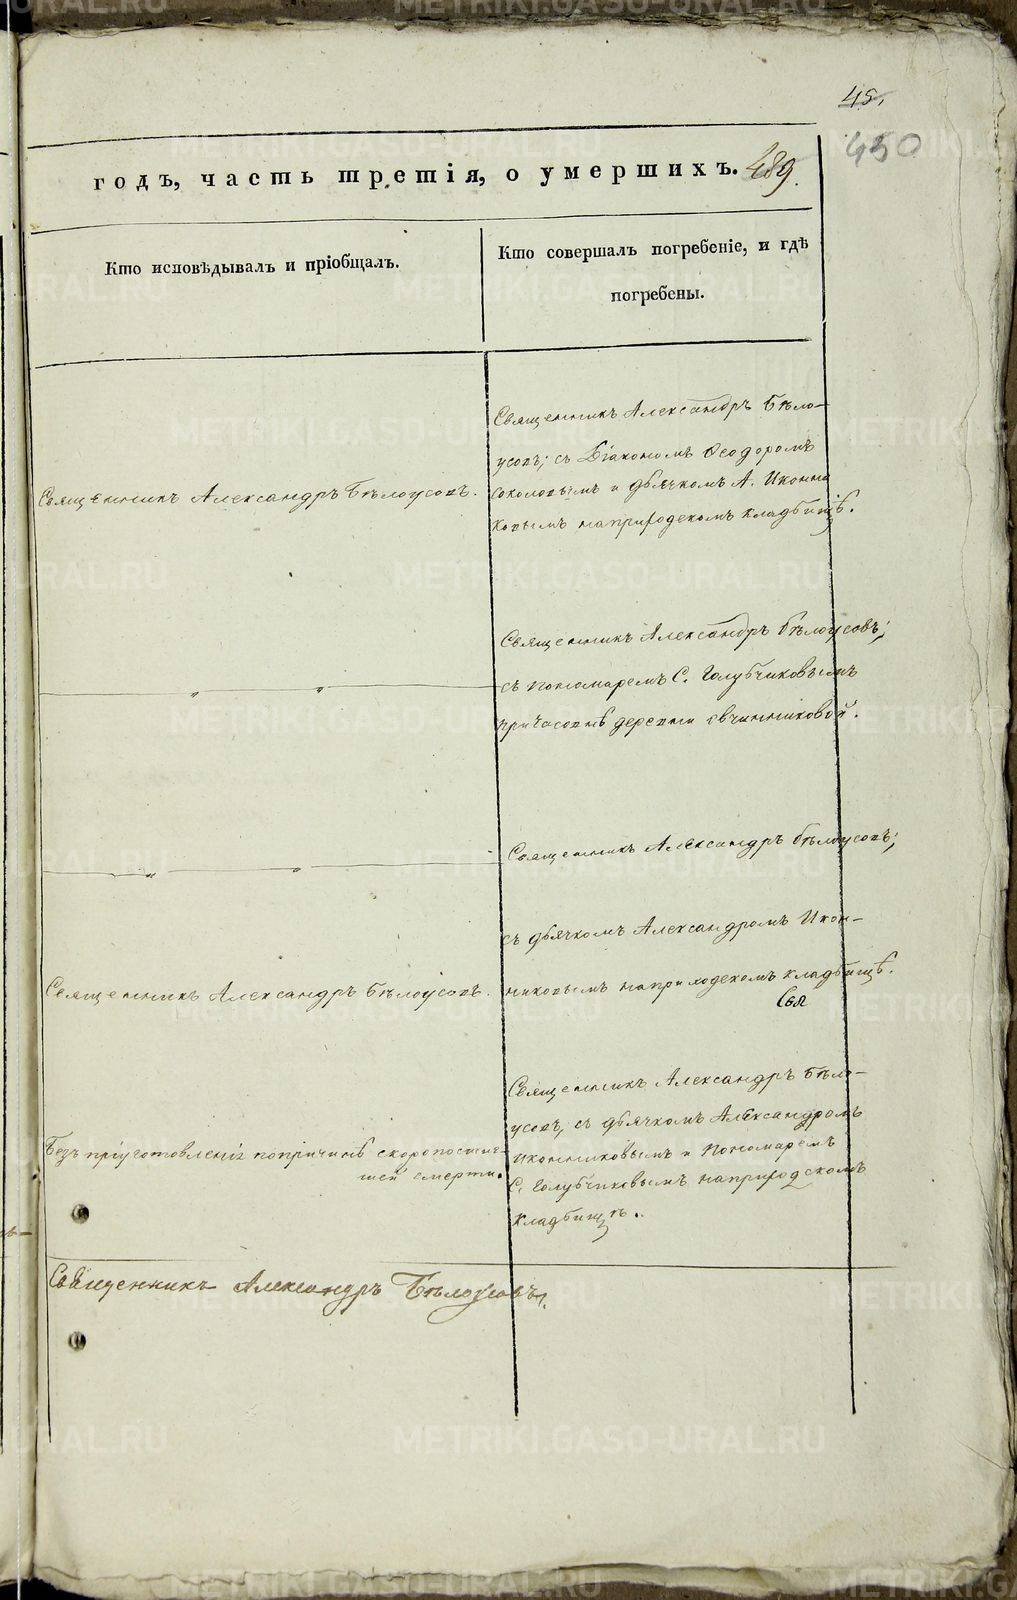 45.
450
годъ, часть третія, о умершихъ. 489.
Кто исповѣдывалъ и пріобщалъ.
Кто совершалъ погребеніе, и гдѣ
погребены.
Священникъ Александръ Бѣлоусовъ.
Священникъ Александръ Бѣло-
усовъ; съ Діакономъ Ѳеодоромъ
Соколовымъ и дьячкомъ А. Иконни
ковымъ на приходскомъ кладбищѣ.
Священникъ Александръ Бѣлоусовъ;
съ пономаремъ С. Голубчиковымъ
при часовнѣ деревни Овчинниковой.
Священникъ Александръ Бѣлоусовъ;
съ дьячкомъ Александромъ Икон-
никовымъ на приходскомъ кладбищѣ.
Свя
Священникъ Александръ Бѣлоусовъ.
Безъ пріуготовленія по причинѣ скоропостиг-
шей смерти.
Священникъ Александръ Бѣло-
усовъ, съ дьячкомъ Александромъ
Иконниковымъ и Пономаремъ
С. Голубчиковымъ на приходскомъ
кладбищѣ.
Священникъ Александръ Бѣлоусовъ.
METRIKI.GASO-URAL.RU